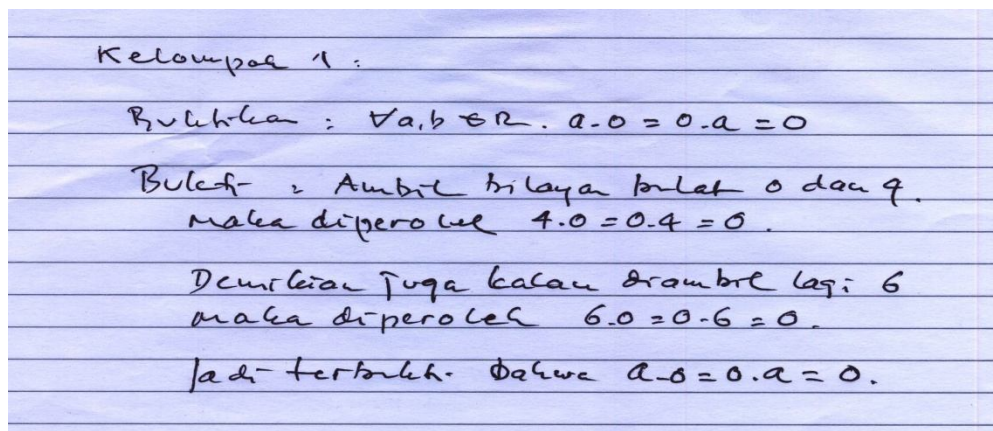 Kelompok 1 :
Buktikan : ∀a,b ∈ R. a.0 = 0.a = 0
Bukti : Ambil bilangan bulat 0 dan 4.
maka diperoleh 4.0 = 0.4 = 0.
Demikian juga kalau diambil lagi 6
maka diperoleh 6.0 = 0.6 = 0.
Jadi terbukti bahwa a.0 = 0.a = 0.